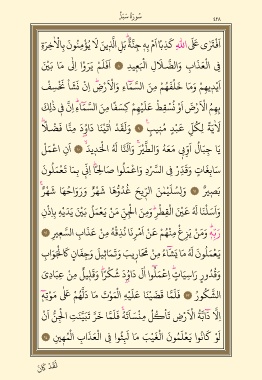 سُورَةُ سَبَإٍ ٤٢٨
اَفْتَرٰى عَلَى اللّٰهِ كَذِباً اَمْ بِه۪ جِنَّةٌۜ بَلِ الَّذ۪ينَ لَا يُؤْمِنُونَ بِالْاٰخِرَةِ
فِي الْعَذَابِ وَالضَّلَالِ الْبَع۪يدِ ﴿٨﴾ اَفَلَمْ يَرَوْا اِلٰى مَا بَيْنَ
اَيْد۪يهِمْ وَمَا خَلْفَهُمْ مِنَ السَّمَٓاءِ وَالْاَرْضِۜ اِنْ نَشَأْ نَخْسِفْ
بِهِمُ الْاَرْضَ اَوْ نُسْقِطْ عَلَيْهِمْ كِسَفاً مِنَ السَّمَٓاءِۜ اِنَّ ف۪ي ذٰلِكَ
لَاٰيَةً لِكُلِّ عَبْدٍ مُن۪يبٍ۟ ﴿٩﴾ وَلَقَدْ اٰتَيْنَا دَاوُ۫دَ مِنَّا فَضْلاًۜ
يَا جِبَالُ اَوِّب۪ي مَعَهُ وَالطَّيْرَۚ وَاَلَنَّا لَهُ الْحَد۪يدَۙ ﴿١٠﴾ اَنِ اعْمَلْ
سَابِغَاتٍ وَقَدِّرْ فِي السَّرْدِ وَاعْمَلُوا صَالِحاًۜ اِنّ۪ي بِمَا تَعْمَلُونَ
بَص۪يرٌ ﴿١١﴾ وَلِسُلَيْمٰنَ الرّ۪يحَ غُدُوُّهَا شَهْرٌ وَرَوَاحُهَا شَهْرٌۚ
وَاَسَلْنَا لَهُ عَيْنَ الْقِطْرِۜ وَمِنَ الْجِنِّ مَنْ يَعْمَلُ بَيْنَ يَدَيْهِ بِاِذْنِ
رَبِّه۪ۜ وَمَنْ يَزِغْ مِنْهُمْ عَنْ اَمْرِنَا نُذِقْهُ مِنْ عَذَابِ السَّع۪يرِ ﴿١٢﴾
يَعْمَلُونَ لَهُ مَا يَشَٓاءُ مِنْ مَحَار۪يبَ وَتَمَاث۪يلَ وَجِفَانٍ كَالْجَوَابِ
وَقُدُورٍ رَاسِيَاتٍۜ اِعْمَلُٓوا اٰلَ دَاوُ۫دَ شُكْراًۜ وَقَل۪يلٌ مِنْ عِبَادِيَ
الشَّكُورُ ﴿١٣﴾ فَلَمَّا قَضَيْنَا عَلَيْهِ الْمَوْتَ مَا دَلَّهُمْ عَلٰى مَوْتِه۪ٓ
اِلَّا دَٓابَّةُ الْاَرْضِ تَأْكُلُ مِنْسَاَتَهُۚ فَلَمَّا خَرَّ تَبَيَّنَتِ الْجِنُّ اَنْ
لَوْ كَانُوا يَعْلَمُونَ الْغَيْبَ مَا لَبِثُوا فِي الْعَذَابِ الْمُه۪ينِ ﴿١٤﴾
لَقَدْ كَانَ